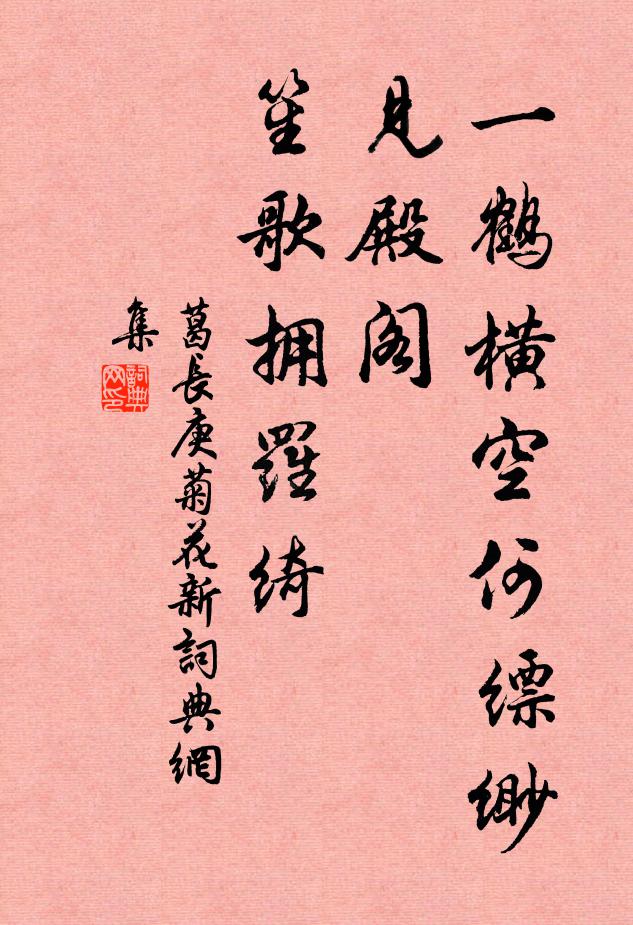 一鶴橫空何縹緲
見殿閣
笙歌拥羅綺
葛長庚菊花新詞典網
集
詞典
网印